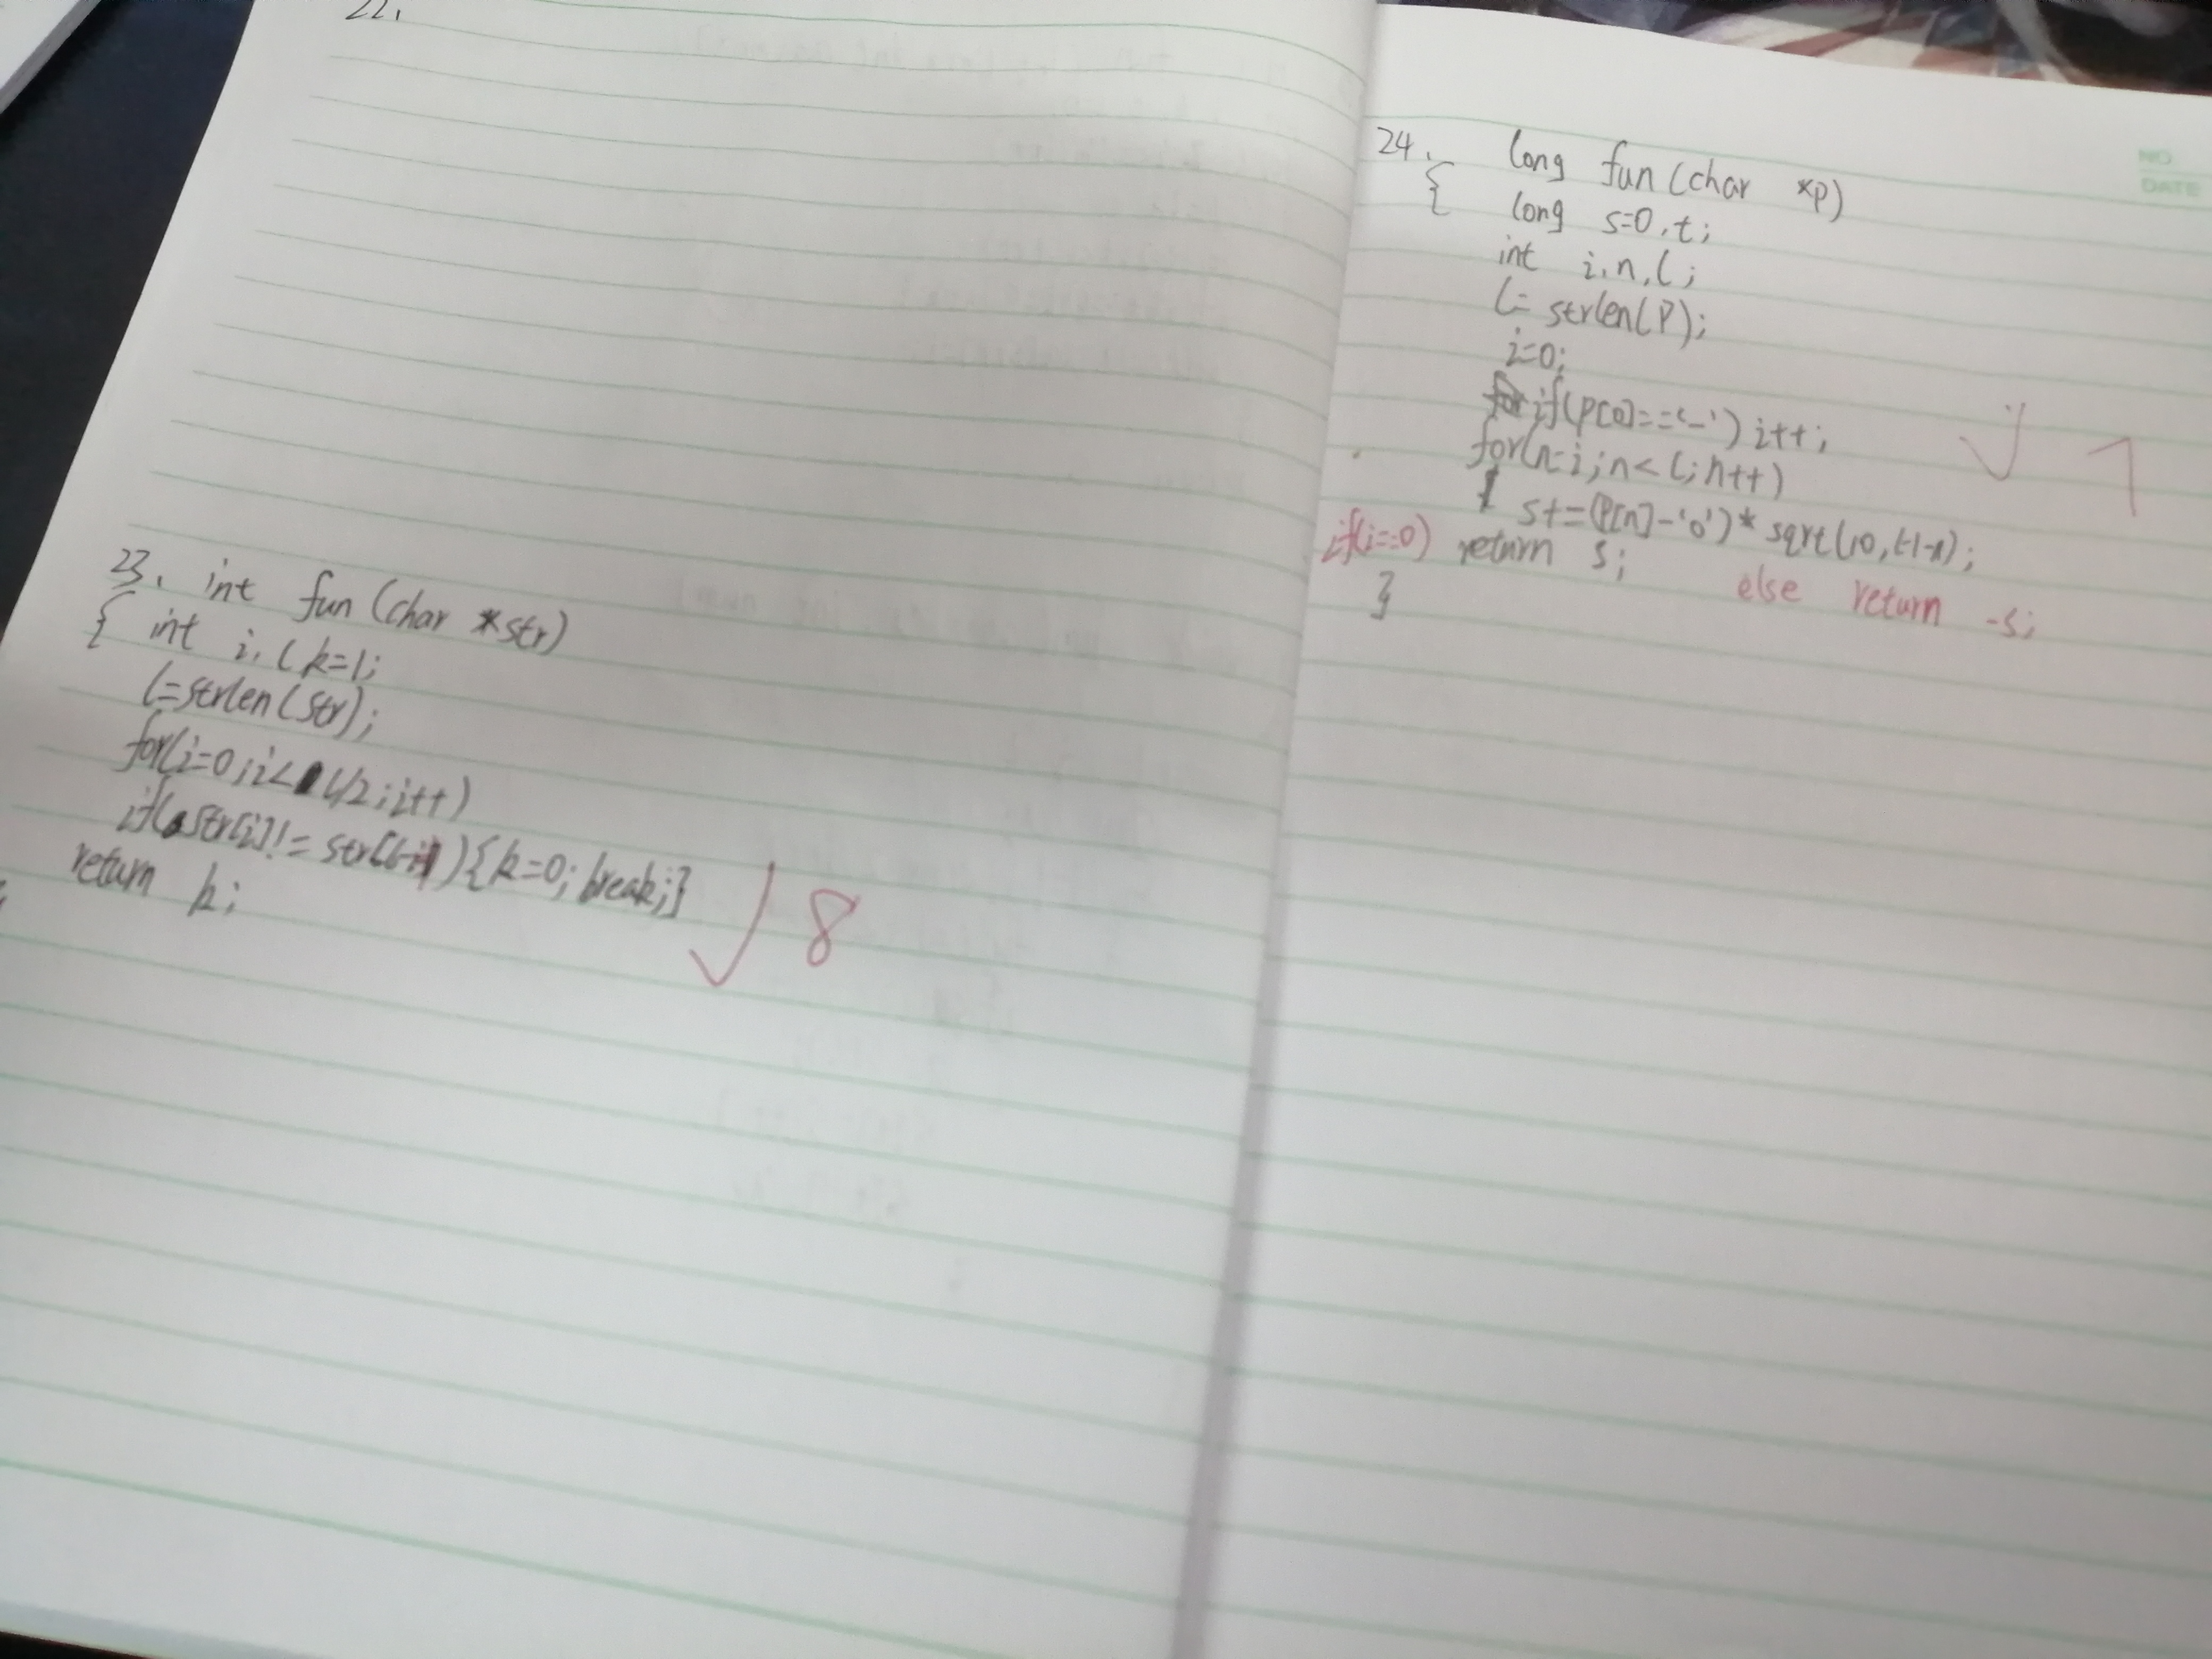 22.
23. int fun (char *str)
{ int i, l k=1;
l=strlen(str);
for(i=0;i<l/2;i++)
if(str[i]!= str[l-i-1]){k=0; break;}
return k;
8
NO.
DATE
24. long fun (char *p)
{ long s=0,t;
int i,n,l;
l= strlen(P);
i=0;
if(p[0]=='-') i++;
for(n=i;n<l;n++)
s+=(P[n]-'0')* sqrt(10,
if(i==0) return s; else return -s;
}
7